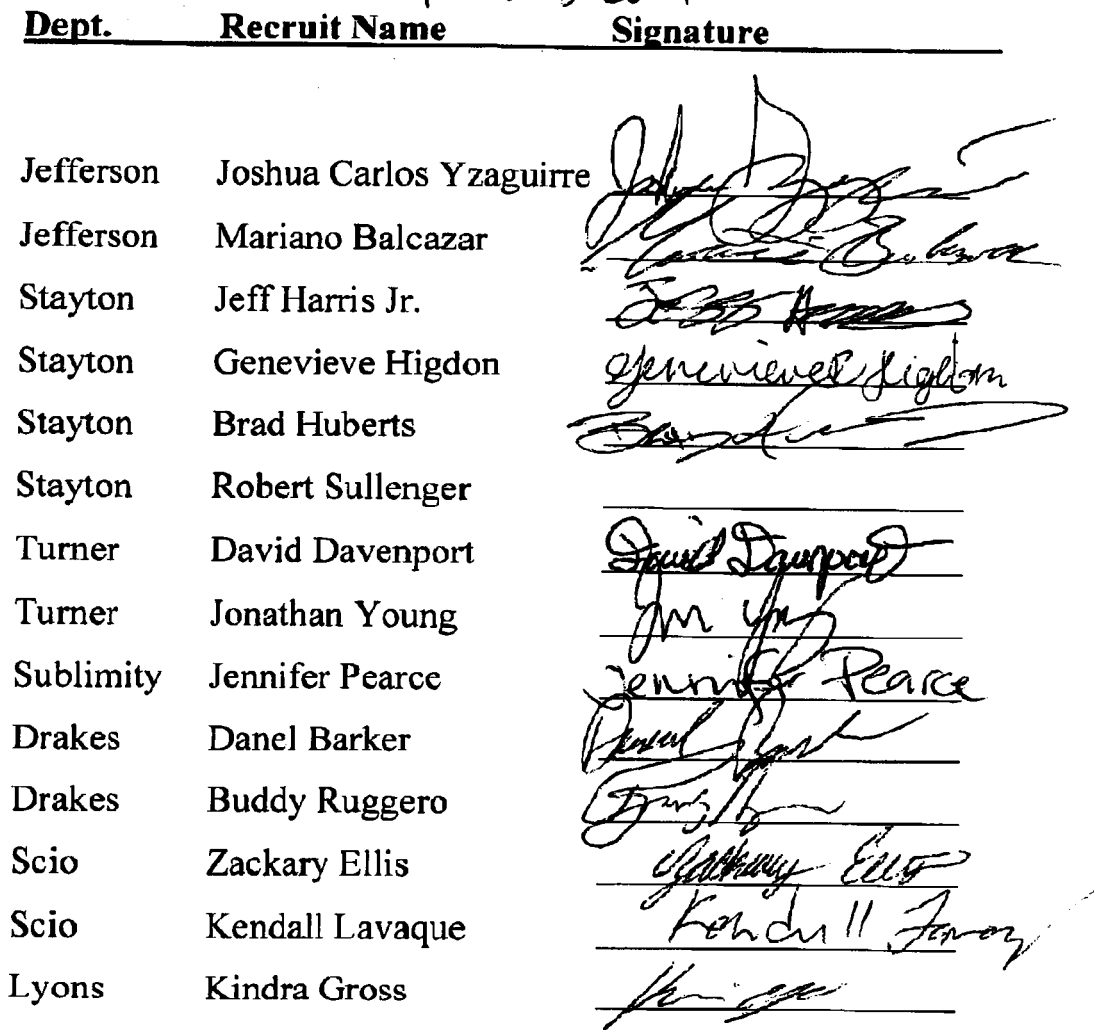 Dept. Recruit Name Signature
Jefferson Joshua Carlos Yzaguirre
Jefferson Mariano Balcazar
Stayton Jeff Harris Jr.
Stayton Genevieve Higdon Genevieve Higdon
Stayton Brad Huberts
Stayton Robert Sullenger
Turner David Davenport David Davenport
Turner Jonathan Young
Sublimity Jennifer Pearce Jennifer Pearce
Drakes Danel Barker
Drakes Buddy Ruggero
Scio Zackary Ellis Zackary Ellis
Scio Kendall Lavaque Kendall
Lyons Kindra Gross